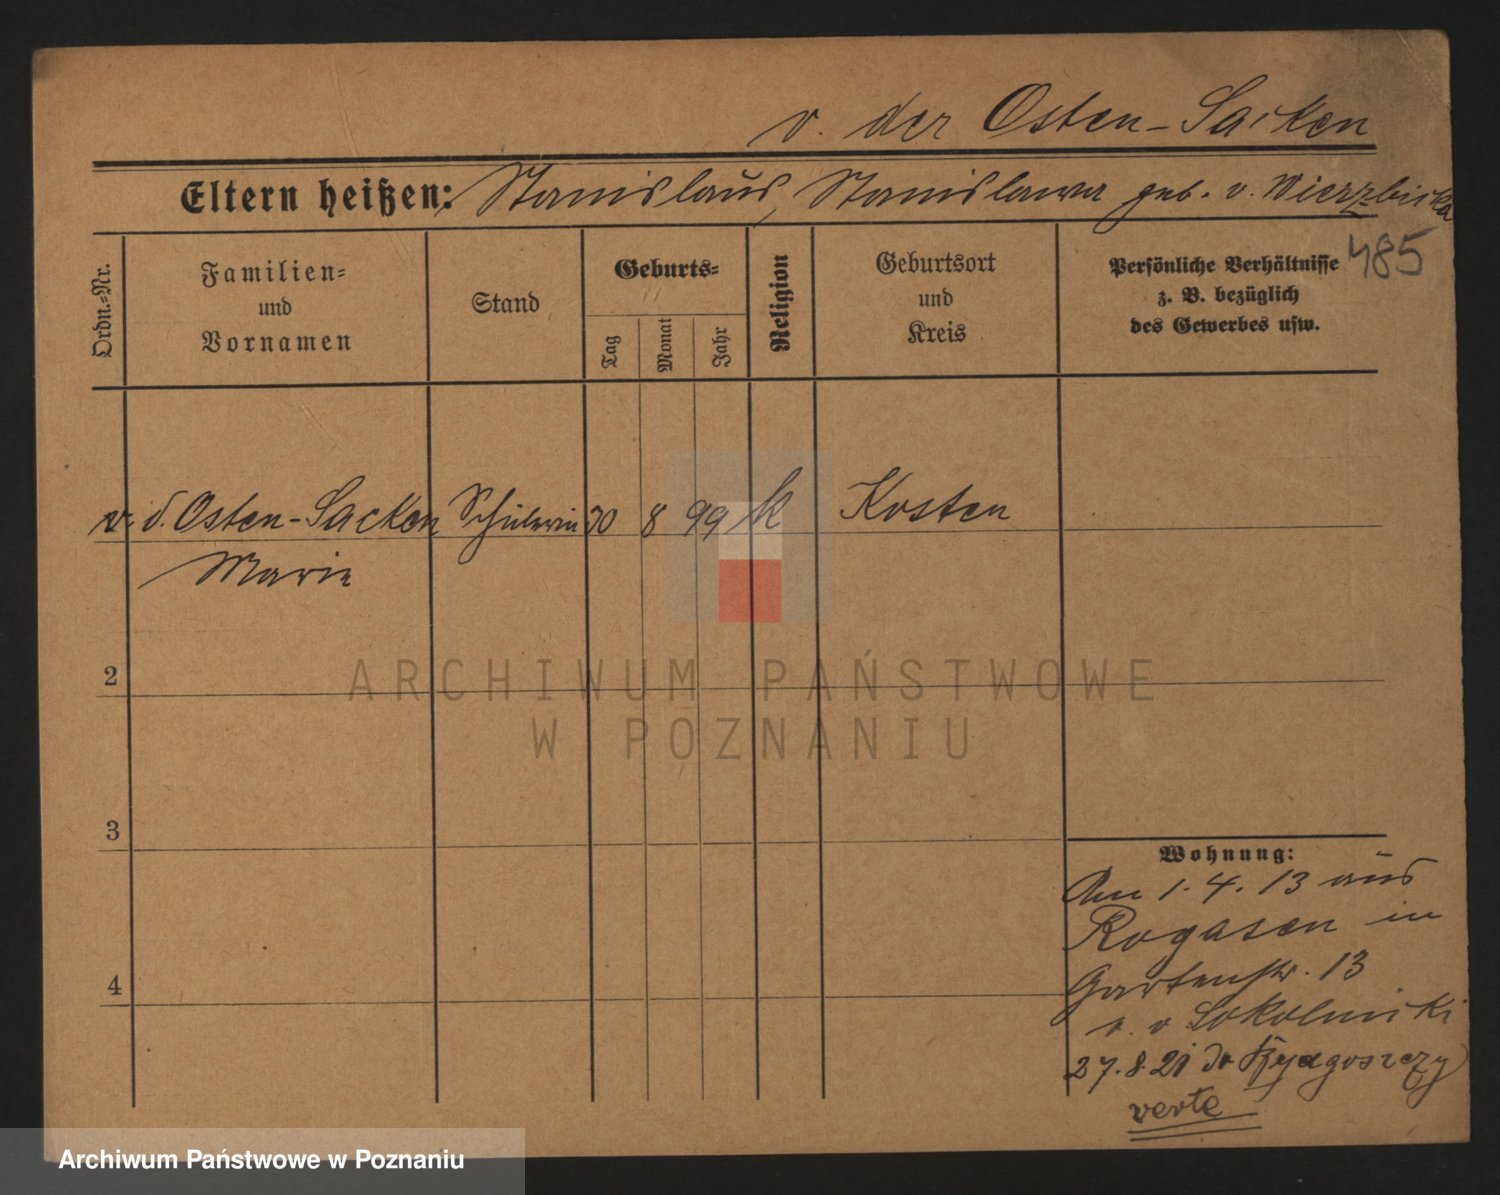 v. der Osten-Sacken
Eltern heißen: Stanislaus, Stanislawa geb. v. Wierzbicka
485
Ordn.-Nr.
Familien-
und
Vornamen
Stand
Geburts-
Tag
Monat
Jahr
Religion
Geburtsort
und
Kreis
Persönliche Verhältnisse
z. B. bezüglich
des Gewerbes usw.
v. d. Osten-Sacken Schülerin 30 8 99 k Kosten
Marie
2
3
4
Wohnung:
Am 1.4.13 aus
Rogasen in
Gartenstr. 13
v. Sokolnicki
27.8.21 do Bydgoszczy
verte
ARCHIWUM PAŃSTWOWE
W POZNANIU
Archiwum Państwowe w Poznaniu